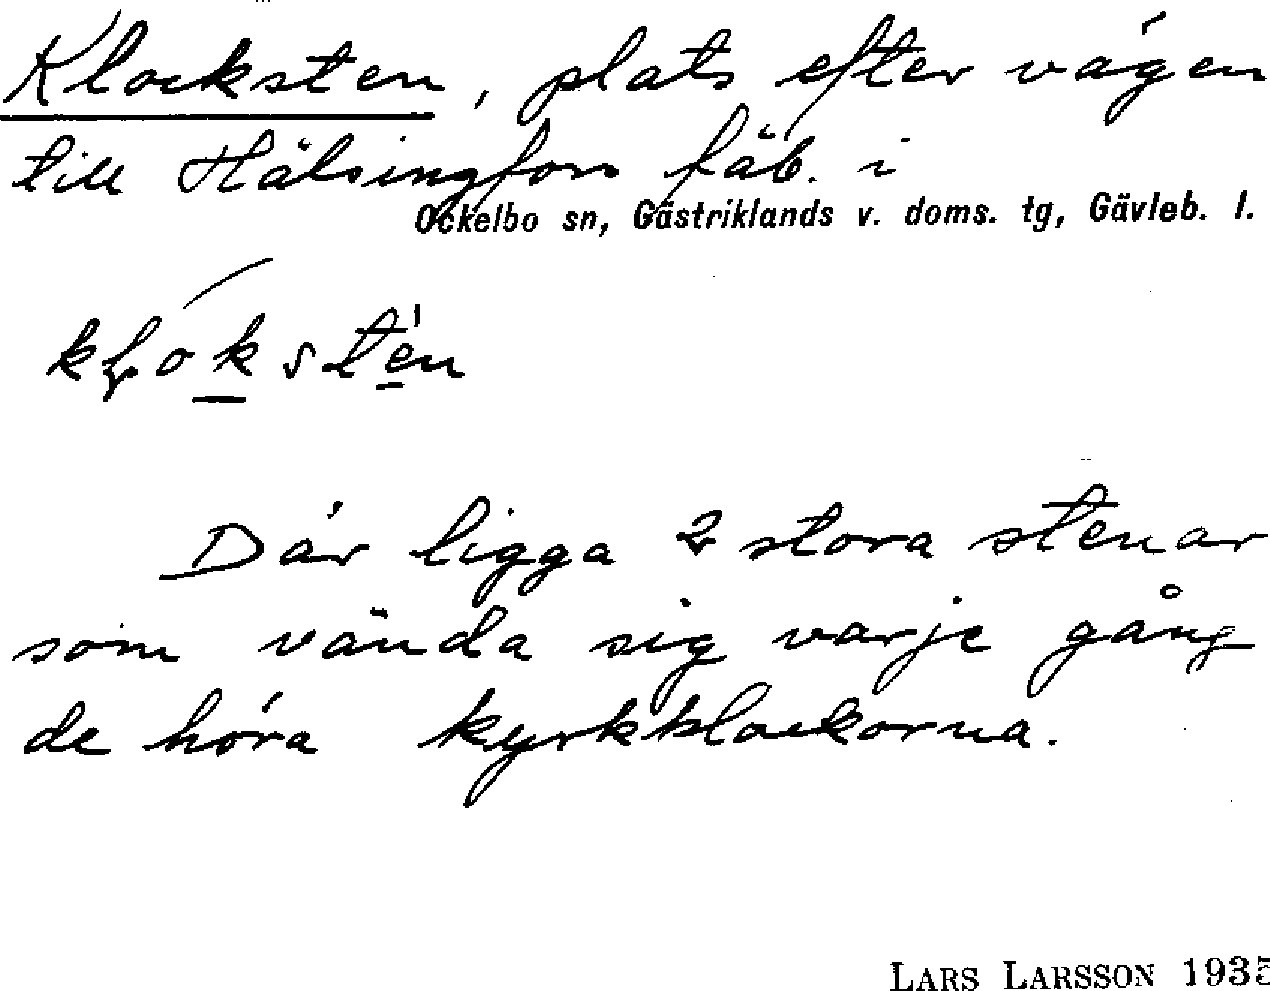 Klocksten, plats efter vägen
till Hälsingfors fäb. i
Ockelbo sn, Gästriklands v. doms. tg, Gävleb. l.
kɽoksten
Där ligga 2 stora stenar
som vända sig varje gång
de höra kyrkklockorna.
LARS LARSSON 1935